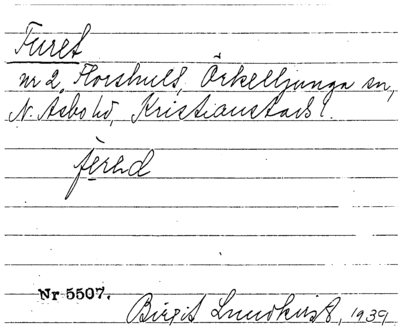 Furet
nr 2, Florshult, Örkelljunga sn,
N. Åsbo hd, Kristianstads l.
Nr 5507.
Birgit Lundkvist, 1939